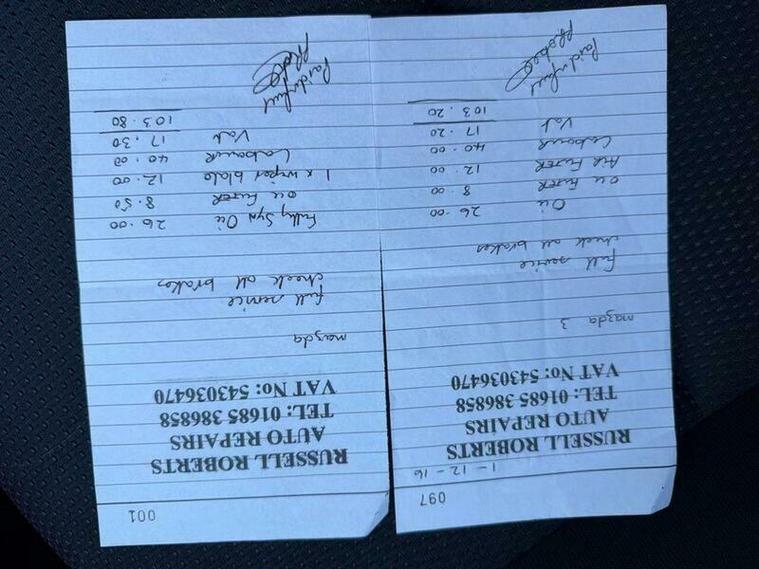 097
1-12-16
RUSSELL ROBERTS
AUTO REPAIRS
TEL: 01685 386858
VAT No: 543036470
mazda 3
full service
check all brakes
Oil 26.00
Oil FILTER 8.00
AIR FILTER 12.00
Labour 40.00
Vat 17.20
103.20
Paid in full
001
RUSSELL ROBERTS
AUTO REPAIRS
TEL: 01685 386858
VAT No: 543036470
mazda
full service
check all brakes
Fully Syn Oil 26.00
Oil FILTER 8.50
1 x wiper blade 12.00
Labour 40.00
Vat 17.30
103.80
Paid in full